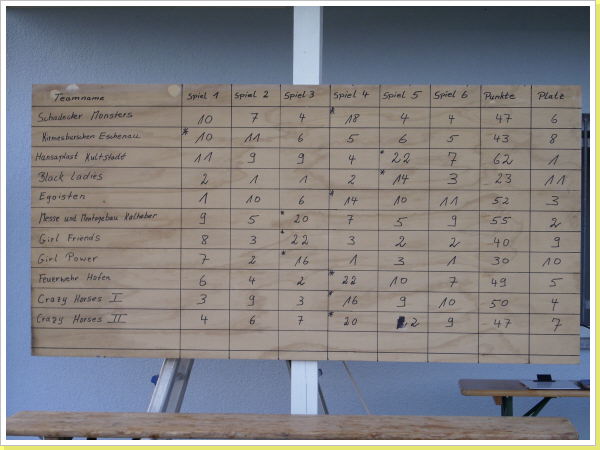 Teamname Spiel 1 Spiel 2 Spiel 3 Spiel 4 Spiel 5 Spiel 6 Punkte Platz
Schadecker Monsters 10 7 4 *18 4 4 47 6
Eschenau *10 11 6 5 6 5 43 8
Hansaplast Kultstadt 11 9 9 4 *22 7 62 1
Black Ladies 2 1 1 2 *14 3 23 11
Egoisten 1 10 6 *14 10 11 52 3
Messe und Montagebau 9 5 *20 7 5 9 55 2
Girl Friends 8 3 *22 3 2 2 40 9
Girl Power 7 2 *16 1 3 1 30 10
Feuerwehr Hofen 6 4 2 *22 10 7 49 5
Crazy Horses I 3 9 3 *16 9 10 50 4
Crazy Horses II 4 6 7 *20 2 9 47 7